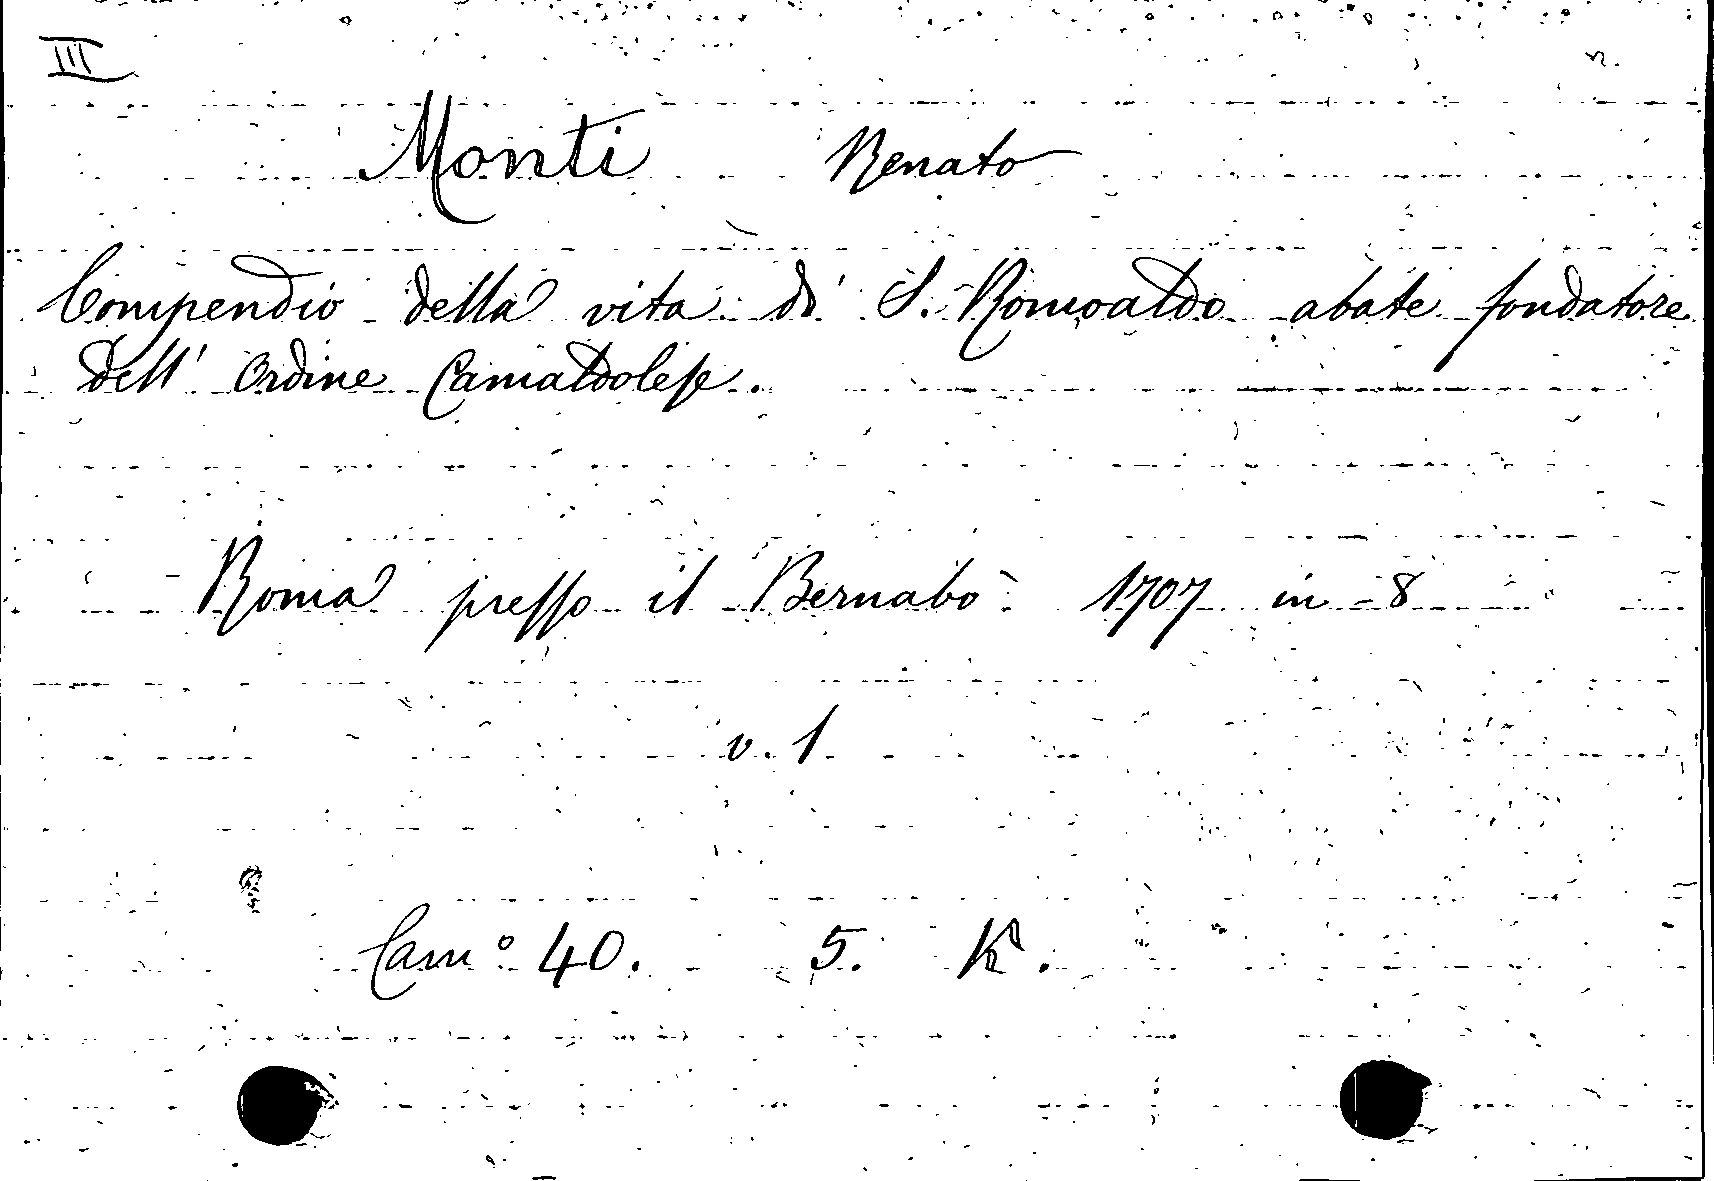 III
Monti Renato
Compendio della vita di S. Romoaldo abate fondatore
dell' Ordine Camaldolese.
Roma presso il Bernabò 1707 in 8
v. 1
Cam° 40. 5. K.